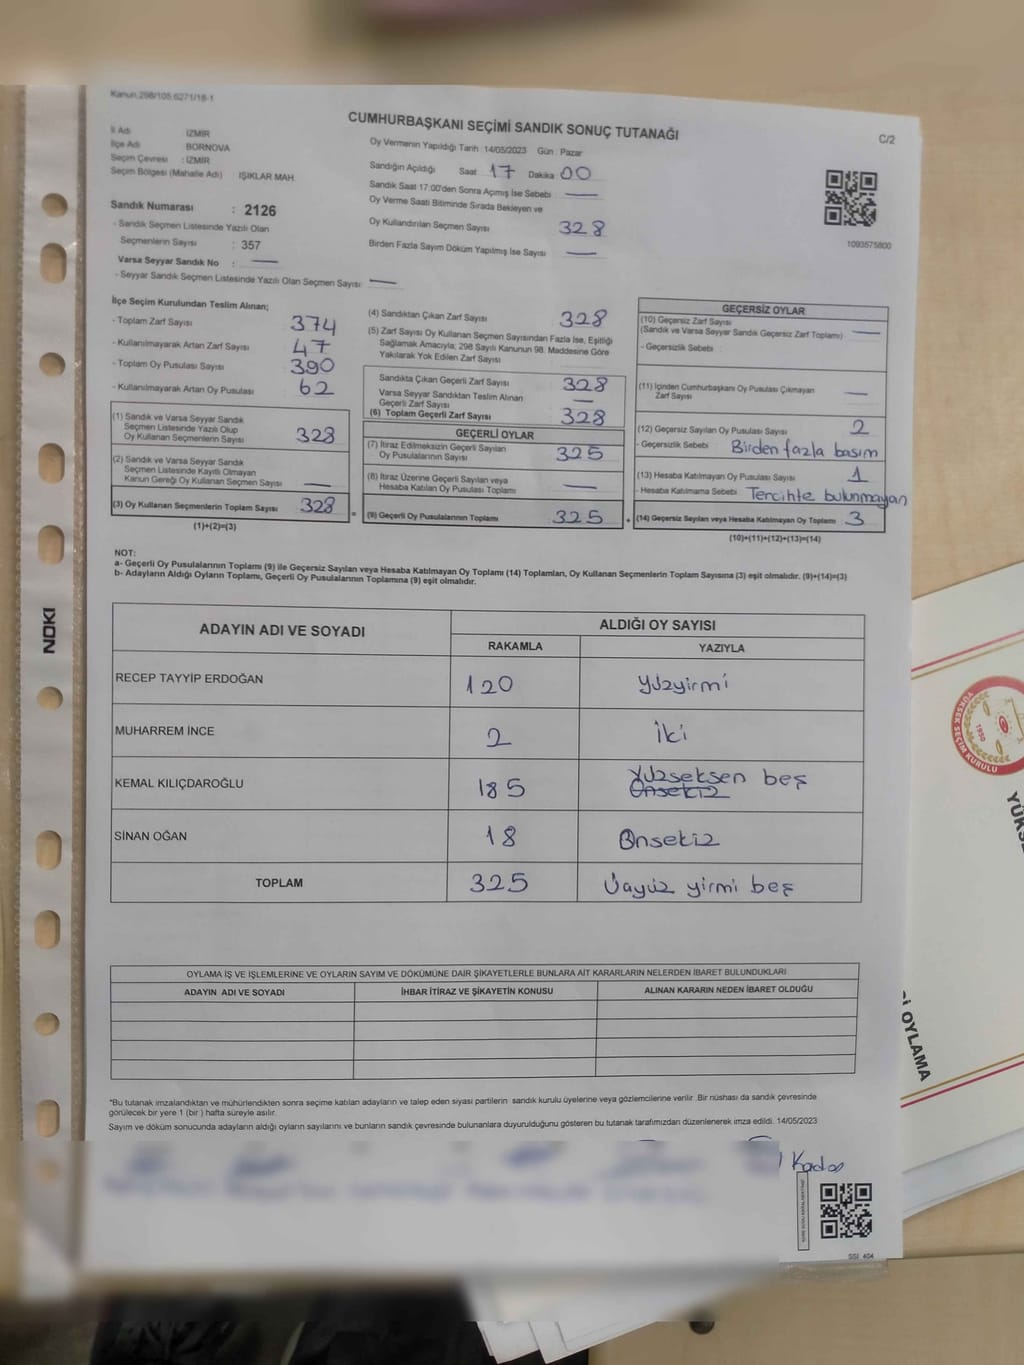 Kanun,298/105;6271/18-1
CUMHURBAŞKANI SEÇİMİ SANDIK SONUÇ TUTANAĞI
C/2
İl Adı İZMİR
İlçe Adı BORNOVA
Seçim Çevresi : İZMİR
Seçim Bölgesi (Mahalle Adı) IŞIKLAR MAH
Sandık Numarası : 2126
- Sandık Seçmen Listesinde Yazılı Olan
Seçmenlerin Sayısı : 357
Varsa Seyyar Sandık No : —
- Seyyar Sandık Seçmen Listesinde Yazılı Olan Seçmen Sayısı: —
Oy Vermenin Yapıldığı Tarih :14/05/2023 Gün : Pazar
Sandığın Açıldığı Saat 17 Dakika 00
Sandık Saat 17:00'den Sonra Açımış İse Sebebi : —
Oy Verme Saati Bitiminde Sırada Bekleyen ve
Oy Kullandırılan Seçmen Sayısı 328
Birden Fazla Sayım Döküm Yapılmış İse Sayısı : —
1093575800
İlçe Seçim Kurulundan Teslim Alınan;
- Toplam Zarf Sayısı 374
- Kullanılmayarak Artan Zarf Sayısı 47
- Toplam Oy Pusulası Sayısı 390
- Kullanılmayarak Artan Oy Pusulası 62
(1) Sandık ve Varsa Seyyar Sandık
Seçmen Listesinde Yazılı Olup
Oy Kullanan Seçmenlerin Sayısı 328
(2) Sandık ve Varsa Seyyar Sandık
Seçmen Listesinde Kayıtlı Olmayan
Kanun Gereği Oy Kullanan Seçmen Sayısı —
(3) Oy Kullanan Seçmenlerin Toplam Sayısı 328
(1)+(2)=(3)
(4) Sandıktan Çıkan Zarf Sayısı 328
(5) Zarf Sayısı Oy Kullanan Seçmen Sayısından Fazla İse, Eşitliği
Sağlamak Amacıyla; 298 Sayılı Kanunun 98. Maddesine Göre
Yakılarak Yok Edilen Zarf Sayısı
Sandıkta Çıkan Geçerli Zarf Sayısı 328
Varsa Seyyar Sandıktan Teslim Alınan
Geçerli Zarf Sayısı —
(6) Toplam Geçerli Zarf Sayısı 328
GEÇERLİ OYLAR
(7) İtiraz Edilmeksizin Geçerli Sayılan
Oy Pusulalarının Sayısı 325
(8) İtiraz Üzerine Geçerli Sayılan veya
Hesaba Katılan Oy Pusulası Toplamı —
= (9) Geçerli Oy Pusulalarının Toplamı 325
GEÇERSİZ OYLAR
(10) Geçersiz Zarf Sayısı
(Sandık ve Varsa Seyyar Sandık Geçersiz Zarf Toplamı) —
- Geçersizlik Sebebi
(11) İçinden Cumhurbaşkanı Oy Pusulası Çıkmayan
Zarf Sayısı —
(12) Geçersiz Sayılan Oy Pusulası Sayısı 2
- Geçersizlik Sebebi Birden fazla basım
(13) Hesaba Katılmayan Oy Pusulası Sayısı 1
- Hesaba Katılmama Sebebi Tercihte bulunmayan
+ (14) Geçersiz Sayılan veya Hesaba Katılmayan Oy Toplamı 3
(10)+(11)+(12)+(13)=(14)
NOT:
a- Geçerli Oy Pusulalarının Toplamı (9) ile Geçersiz Sayılan veya Hesaba Katılmayan Oy Toplamı (14) Toplamları, Oy Kullanan Seçmenlerin Toplam Sayısına (3) eşit olmalıdır. (9)+(14)=(3)
b- Adayların Aldığı Oyların Toplamı, Geçerli Oy Pusulalarının Toplamına (9) eşit olmalıdır.
ADAYIN ADI VE SOYADI ALDIĞI OY SAYISI
RAKAMLA YAZIYLA
RECEP TAYYİP ERDOĞAN 120 Yüzyirmi
MUHARREM İNCE 2 İki
KEMAL KILIÇDAROĞLU 185 Yüzseksen beş
Onsekiz
SİNAN OĞAN 18 Onsekiz
TOPLAM 325 Üçyüz yirmi beş
OYLAMA İŞ VE İŞLEMLERİNE VE OYLARIN SAYIM VE DÖKÜMÜNE DAİR ŞİKAYETLERLE BUNLARA AİT KARARLARIN NELERDEN İBARET BULUNDUKLARI
ADAYIN ADI VE SOYADI İHBAR İTİRAZ VE ŞİKAYETİN KONUSU ALINAN KARARIN NEDEN İBARET OLDUĞU
*Bu tutanak imzalandıktan ve mühürlendikten sonra seçime katılan adayların ve talep eden siyasi partilerin sandık kurulu üyelerine veya gözlemcilerine verilir .Bir nüshası da sandık çevresinde
görülecek bir yere 1 (bir ) hafta süreyle asılır.
Sayım ve döküm sonucunda adayların aldığı oyların sayılarını ve bunların sandık çevresinde bulunanlara duyurulduğunu gösteren bu tutanak tarafımızdan düzenlenerek imza edildi. 14/05/2023
SSİ 404
NOKI
YÜKSEK SEÇİM KURULU
1950
OYLAMA